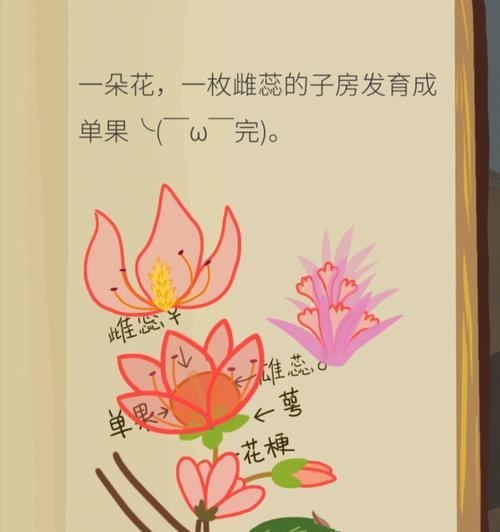 一朵花，一枚雌蕊的子房发育成
单果╰(￣ω￣完)。
雌蕊.♀
雄蕊。
单果
萼
花梗